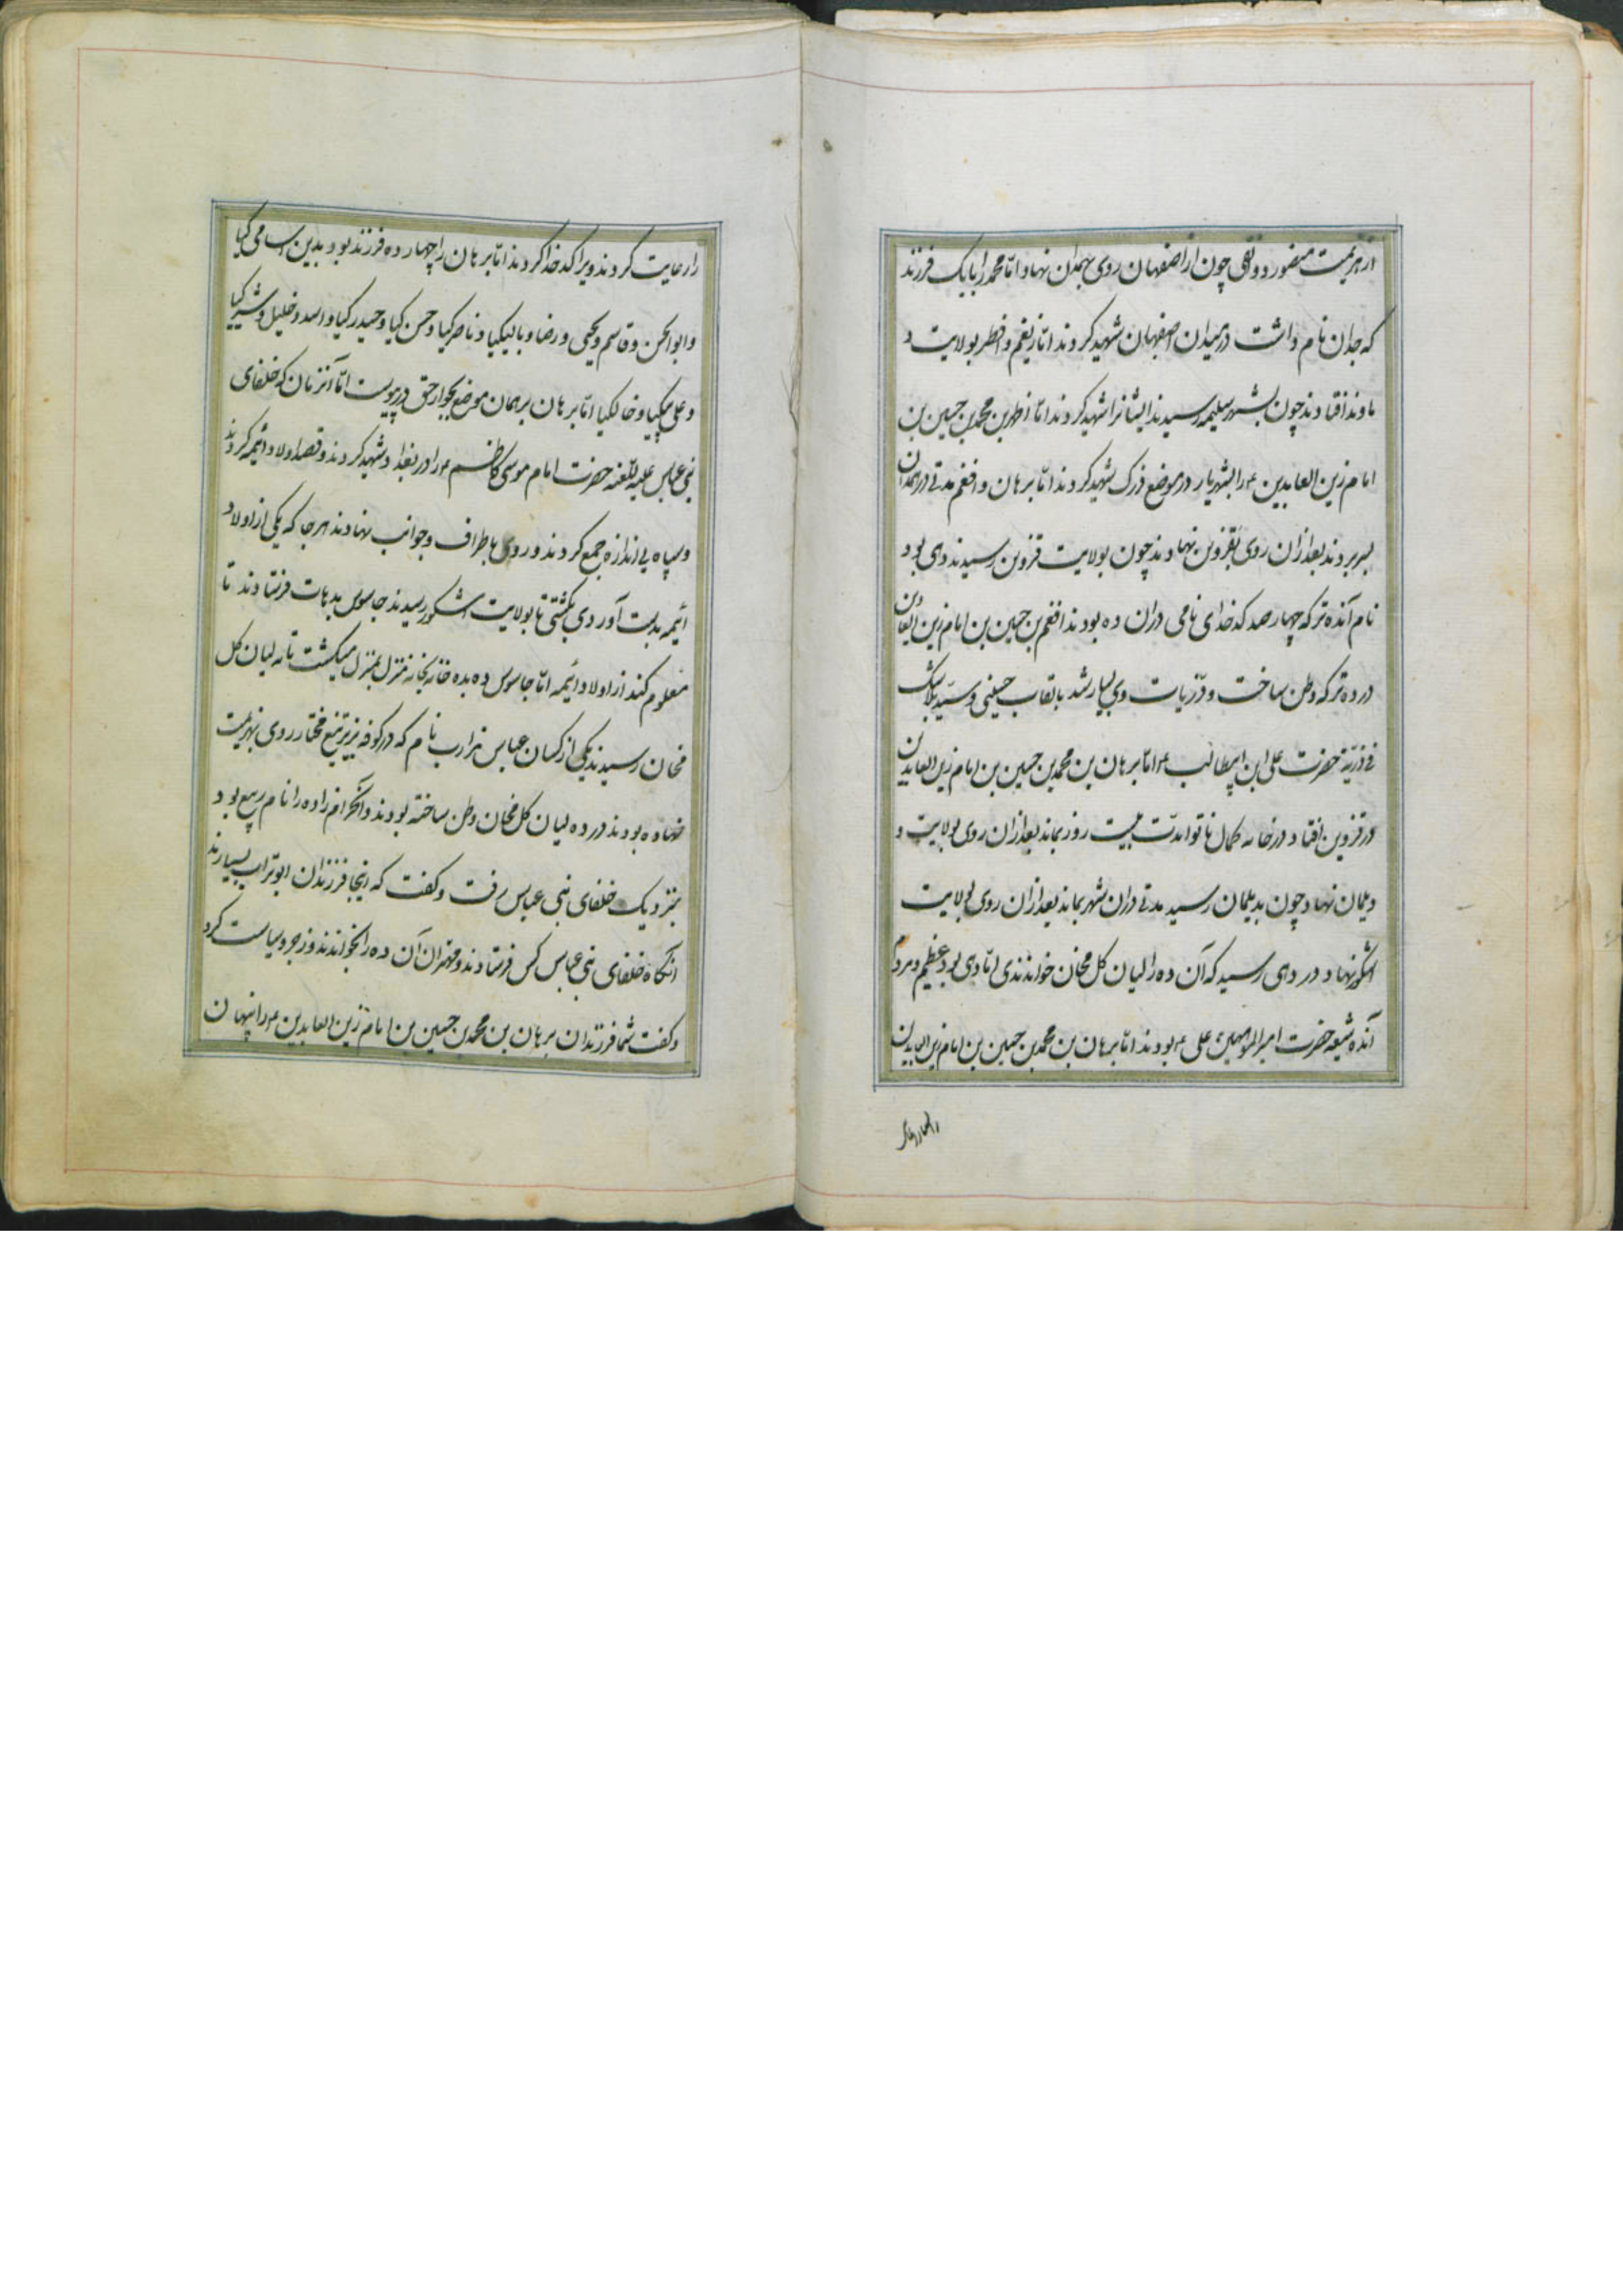 از هزیمت منصور دونقی چون از اصفهان روی بهمدان نهاد و اما محمد را با یک فرزند
که جدان نام داشت در میدان اصفهان شهید کردند اما زیغم و افطر بولایت د
ماوند افتادند چون بشهر سلیمه رسیدند ایشانرا شهید کردند اما اظهر بن محمد بن حسین بن
امام زین العابدین ع را بشهریار در موضع ذرک شهید کردند اما برهان و افغم مدتی در همدان
بسر بردند بعد از آن روی بقزوین نهادند چون بولایت قزوین رسیدند دهی بود
نام آنده ترکه چهارصد کدخدای نامی در آن ده بودند افغم بن حسین بن امام زین العابدین
در ده ترکه وطن ساخت و ذریات وی بسیار شد بالقاب حسینی و سید بلاشک
فی ذریة حضرت علی ابن ابیطالب ع اما برهان بن محمد بن حسین بن امام زین العابدین
در قزوین افتاد در خانه کمال نانوا مدت بیست روز بماند بعد از آن روی بولایت و
دیلمان نهاد چون بدیلمان رسید مدتی در آن شهر بماند بعد از آن روی بولایت
اشکور نهاد در دهی رسید که آن ده را لیان کل مخان خواندندی اما دهی بود عظیم و مردم
آنده شیعه حضرت امیر المؤمنین علی ع بودند اما برهان بن محمد بن حسین بن امام زین العابدین
را رعایت کردند ویرا کدخدا کردند اما برهان را چهارده فرزند بود بدین اسامی کیا
و ابو الحسن و قاسم و یحیی و رضا و بالیکیا و ناصر کیا و حسن کیا و حیدر کیا و اسد و خلیل و شیر کیا
و علی کیا و خالکیا اما برهان بر همان موضع بجوار حق در پیوست اما آنزمان که خلفای
بنی عباس علیه اللعنه حضرت امام موسی کاظم ع را در بغداد شهید کردند و قصد اولاد ائیمه کردند
و سپاه بی اندازه جمع کردند و روی باطراف و جوانب نهادند هر جا که یکی از اولاد
ائیمه بدست آوردی بکشتی تا بولایت اشکور رسیدند جاسوس بدهات فرستادند تا
معلوم کند از اولاد ائیمه اما جاسوس ده بده خانه بخانه منزل بمنزل میکشت تا به لیان کل
مخان رسیدند یکی از کسان عباس نام که در کوفه از تیغ مختار روی بهزیمت
نهاده بودند در ده لیان کل مخان وطن ساخته بودند و آنحرامزاده را نام ربیع بود
بنزدیک خلفای بنی عباس رفت و کفت که اینجا فرزندان ابو تراب بسیارند
آنکاه خلفای بنی عباس کس فرستادند و مهتران آن ده را بخواندند و زجر و سیاست کرد
و کفت شما فرزندان برهان بن محمد بن حسین بن امام زین العابدین ع را پنهان